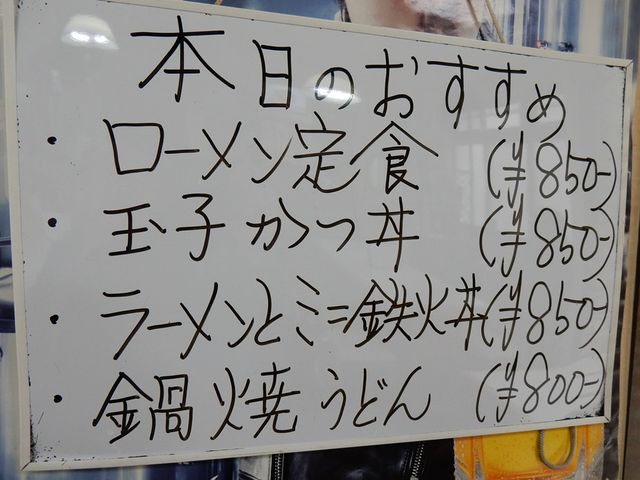 本日のおすすめ
・ローメン定食 (¥850-)
・玉子かつ丼 (¥850-)
・ラーメンとミニ鉄火丼(¥850-)
・鍋焼うどん (¥800-)